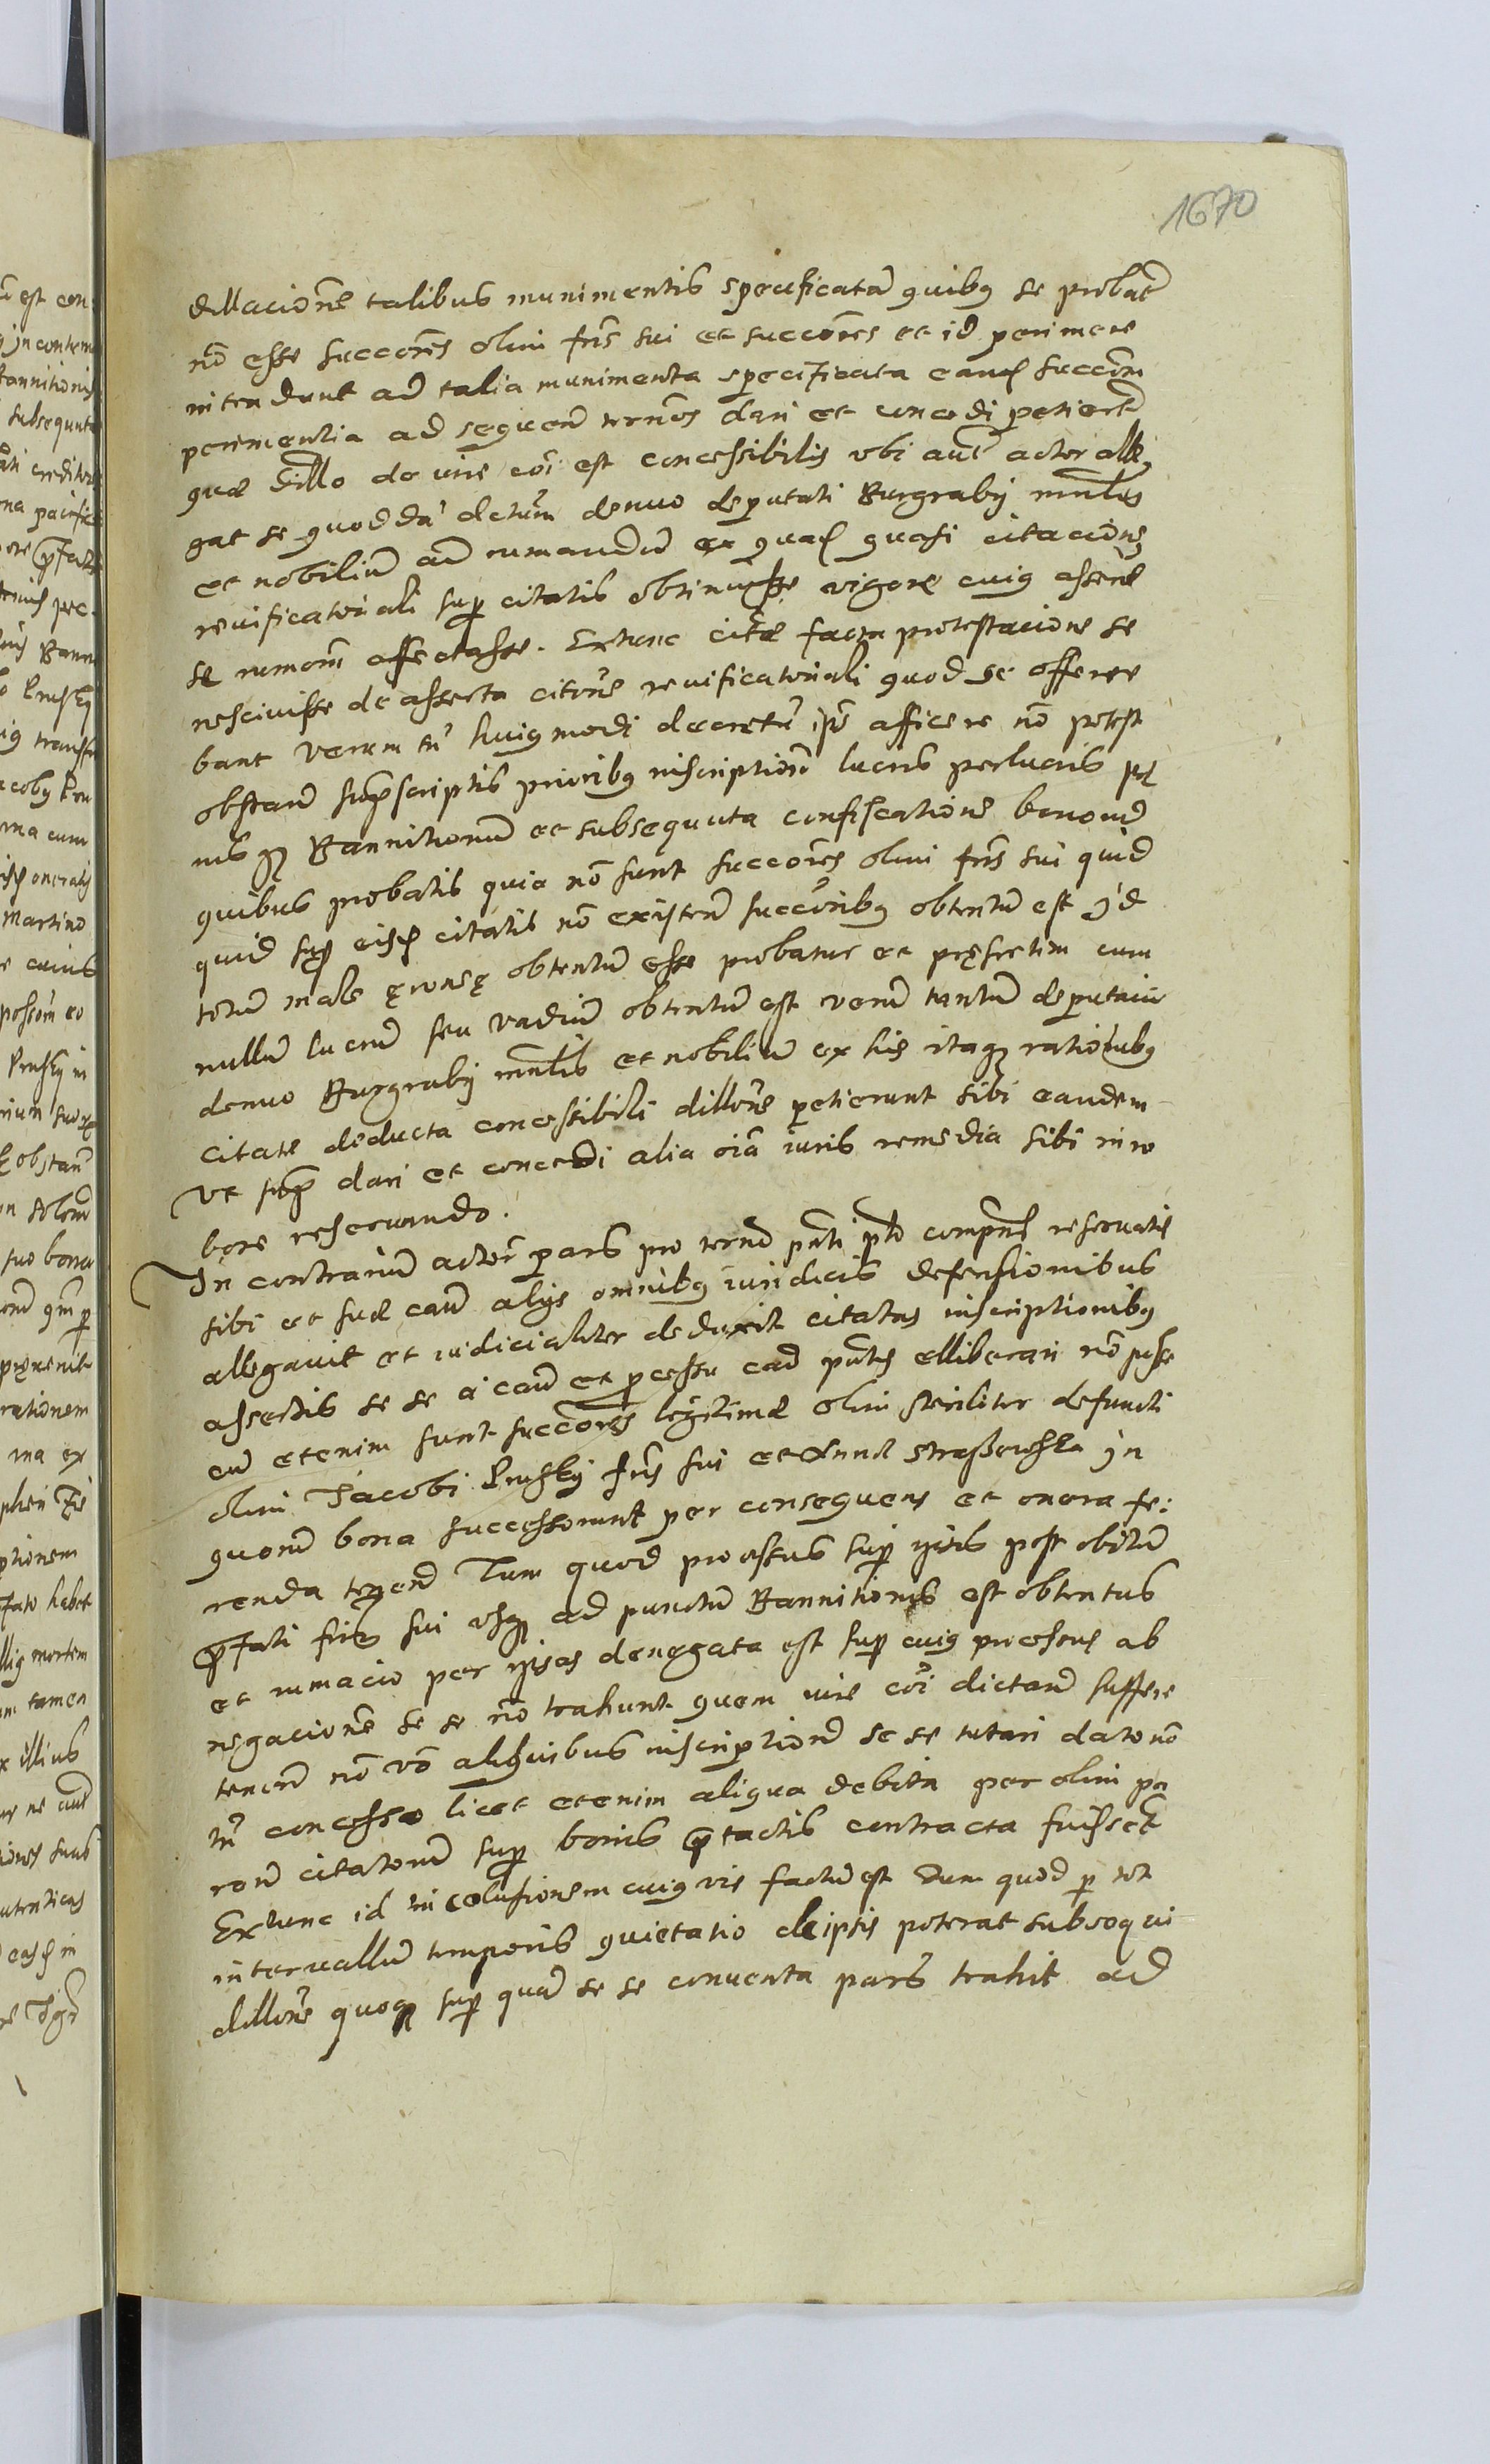 1670
dillacione talibus munimentis specificatã quibus se probat
nõ esse succores olim fris sui et succores et id perimere
intendunt ad talia munimenta specificata eand succom
perimentia ad sequen termos dari et concedi petiert
quæ dillo de iure coi est concessibilis vbi aut actor alle
gat se quodda dctum denuo deputati Burgrabij
et nobiliu ad rumandu ex quad quasi citacione
reuificatoriali sup citatis obtinuisse vigore cuius assere
se rumom affectasse. Extunc citæ facta protestacione se
nesciuisse de asserta citone reuificatoriali quod se offere
bant verum tn huiusmodi decretu ipse afficere nõ potest
obstan supscriptis prioribus inscriptiom lucris perlucris pę
nisque Bannitionum et subsequuta confiscatione bonoru
quibus probatis quia nõ sunt succores olim fris sui quid
quid sup eisd citatis nõ existen succoribus obtentu est id
totum male obtentum esse probatur et pręsertim cum
nullum lucrum seu vadium obtentu est veru tantum deputaciu
denuo Burgrabij et nobilium ex his itaque rationibus
citate deducta concessibili dillone petierunt sibi eandem
vt sup dari et concedi alia oia iuris remedia sibi in ro
bore reseruando.
In contrarium actor pars pro termo pnti pto compns reseruatis
sibi et suæ cau alijs omnibus iuridicis defensionibus
allegauit et iudicialiter deduxit citatas inscriptionibus
assertis se se a cau et pcessu ead pntis elliberari nõ posse
eæ etenim sunt succores legitimæ olim steriliter defuncti
olim Jacobi Pruski fris sui et Annæ Straszewska in
quorum bona successerunt per consequens et onera fe:
renda tenen Tum quod processus sup ipsis post obitum
pfati fris sui vsque ad punctu Bannitionis est obtentus
et rumacio per ipsas denegata est sup cuius processus ab
negacione se se nõ trahunt quem iure coi dictan suffere
tenen nõ võ aliquibus inscriptioni se se tutari dato nõ
tn concesso licet etenim aliqua debita per olim pa
rom citatorum sup bonis ptactis contracta fuissent
Extunc id in colusionem cuiusvis factu est Dum quod p tot
interuallum temporis quietatio de ipsis poterat subsequi
dillone quoque sup quã se se conuenta pars trahit ad